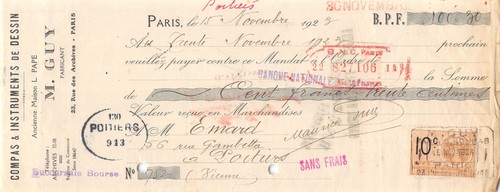 Poitiers
30 NOVEMBRE
PARIS, le 15 Novembre 1922 B. P. F. 100 30
Au Trente Novembre 1922 prochain
veuillez payer contre ce Mandat à l'Ordre de
B.N.C. PARIS
BANQUE NATIONALE la Somme
de Cent francs trente centimes
Valeur reçue en Marchandises
A M Emard Maurice
56 rue Gambetta
à Poitiers
Nº (Vienne)
SANS FRAIS
COMPAS & INSTRUMENTS DE DESSIN
Ancienne Maison L. PAPE
M. GUY
FABRICANT
23, Rue des Archives - PARIS
Téléphone
ARCHIVES
130
POITIERS
913
Succursale Bourse
10c